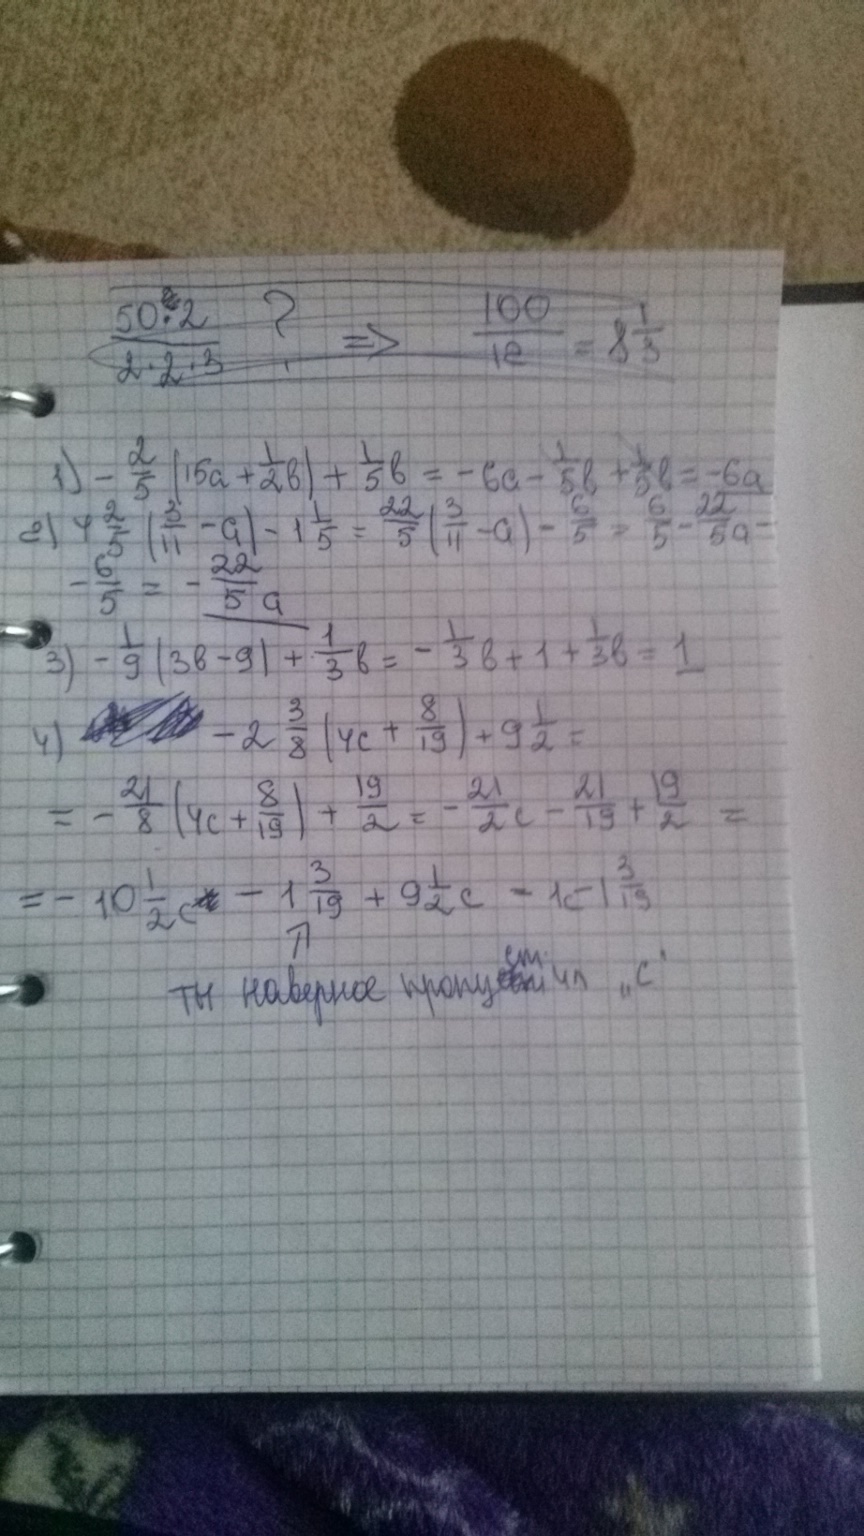 50·2 / 2·2·3 ? => 100/12 = 8 1/3
1) - 2/5 (15a + 1/2 в) + 1/5 в = -6a - 1/5 в + 1/5 в = -6a
2) 4 2/5 (3/11 - a) - 1 1/5 = 22/5 (3/11 - a) - 6/5 = 6/5 - 22/5 a -
- 6/5 = - 22/5 a
3) - 1/9 (3в - 9) + 1/3 в = - 1/3 в + 1 + 1/3 в = 1
4) - 2 3/8 (4c + 8/19) + 9 1/2 =
= - 21/8 (4c + 8/19) + 19/2 = - 21/2 c - 21/19 + 19/2 =
= - 10 1/2 c - 1 3/19 + 9 1/2 c - 1c - 1 3/19
ты наверное пропустил „c"